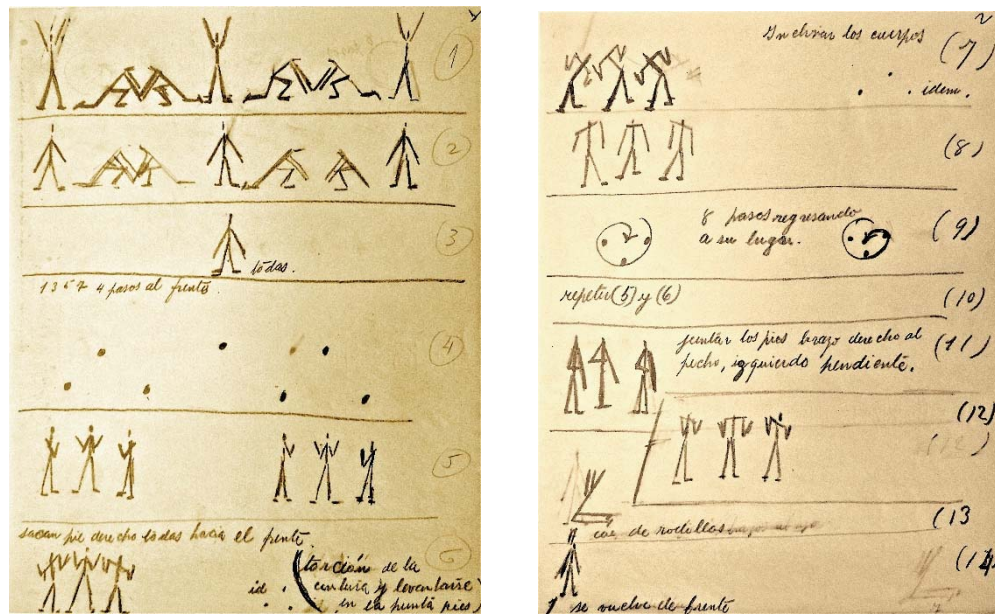 1
(1)
(2)
(3)
todas.
1 3 5 7 4 pasos al frente
(4)
(5)
sacan pie derecho todas hacia el frente.
(6)
(torción de la
id . cintura y levantarse
. . en la punta pies)
2
Inclinar los cuerpos
(7)
. . idem.
(8)
8 pasos regresando
a su lugar.
(9)
repetir (5) y (6)
(10)
juntar los pies brazo derecho al
pecho, izquierdo pendiente.
(11)
(12)
(12)
cae de rodillas
(13
(14
1 se vuelve de frente